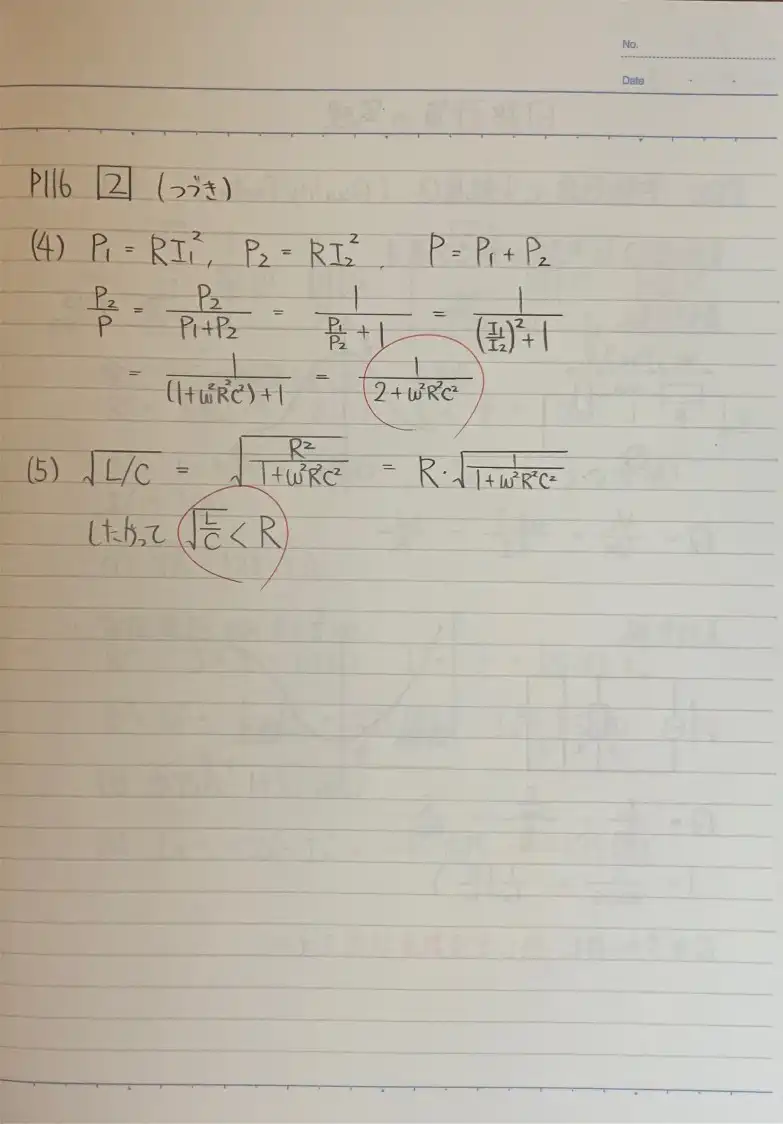 No.
Date
P116 2 (つづき)
(4) P₁ = RI₁², P₂ = RI₂², P = P₁ + P₂
P₂/P = P₂/(P₁+P₂) = 1/(P₁/P₂ + 1) = 1/((I₁/I₂)² + 1)
= 1/((1+ω²R²C²)+1) = 1/(2+ω²R²C²)
(5) √L/C = √(R²/(1+ω²R²C²)) = R·√(1/(1+ω²R²C²))
したがって √(L/C) < R